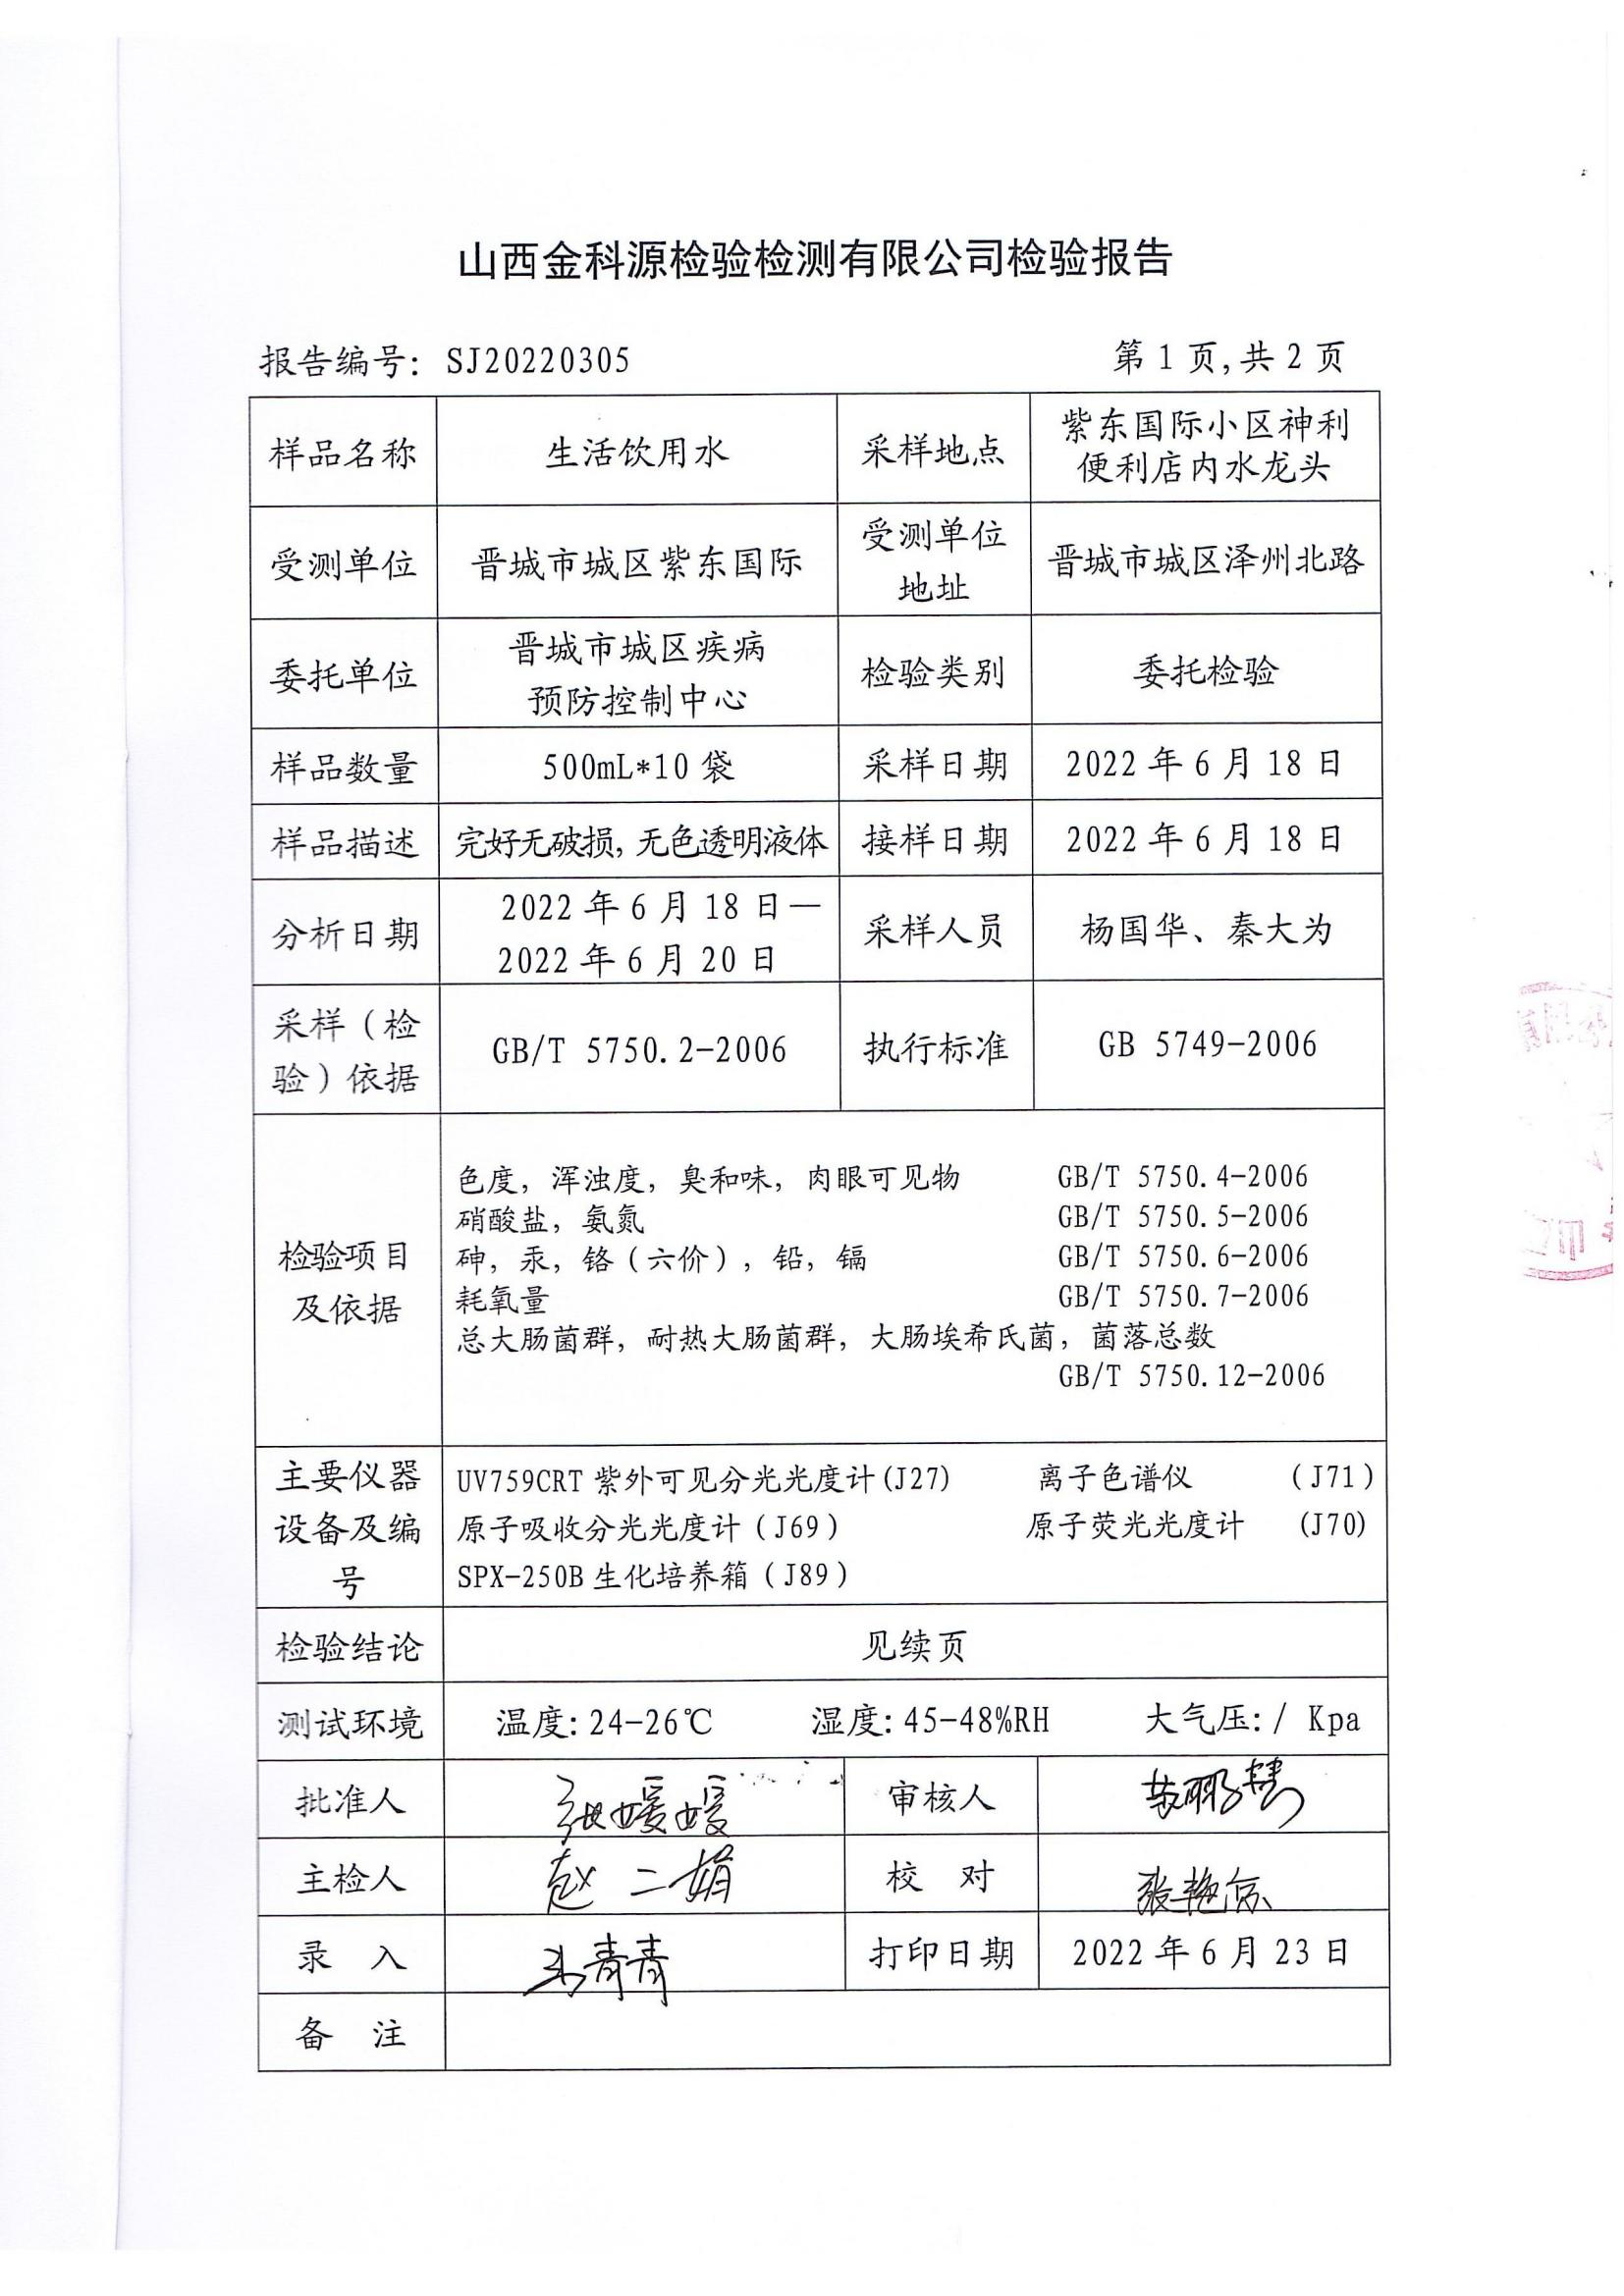 山西金科源检验检测有限公司检验报告
报告编号: SJ20220305 第 1 页,共 2 页
样品名称 生活饮用水 采样地点 紫东国际小区神利
便利店内水龙头
受测单位 晋城市城区紫东国际 受测单位
地址 晋城市城区泽州北路
委托单位 晋城市城区疾病
预防控制中心 检验类别 委托检验
样品数量 500mL*10 袋 采样日期 2022 年 6 月 18 日
样品描述 完好无破损, 无色透明液体 接样日期 2022 年 6 月 18 日
分析日期 2022 年 6 月 18 日—
2022 年 6 月 20 日 采样人员 杨国华、秦大为
采样(检
验)依据 GB/T 5750.2-2006 执行标准 GB 5749-2006
检验项目
及依据
色度, 浑浊度, 臭和味, 肉眼可见物 GB/T 5750.4-2006
硝酸盐, 氨氮 GB/T 5750.5-2006
砷, 汞, 铬(六价), 铅, 镉 GB/T 5750.6-2006
耗氧量 GB/T 5750.7-2006
总大肠菌群, 耐热大肠菌群, 大肠埃希氏菌, 菌落总数
GB/T 5750.12-2006
主要仪器
设备及编
号
UV759CRT 紫外可见分光光度计(J27) 离子色谱仪 (J71)
原子吸收分光光度计(J69) 原子荧光光度计 (J70)
SPX-250B 生化培养箱(J89)
检验结论 见续页
测试环境 温度: 24-26℃ 湿度: 45-48%RH 大气压: / Kpa
批准人 张媛媛 审核人
主检人 赵二娟 校 对
录 入 打印日期 2022 年 6 月 23 日
备 注